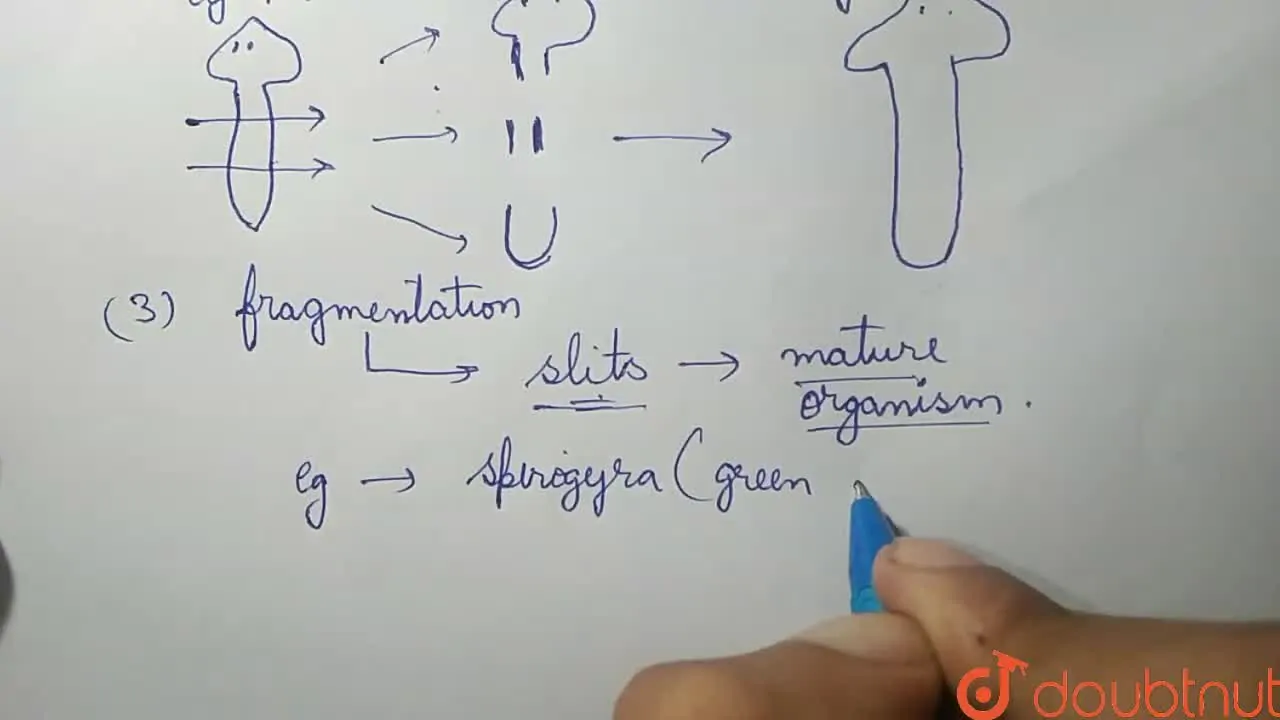 eg
(3) fragmentation
↳ slits → mature
organism.
eg → spirogyra (green
doubtnut